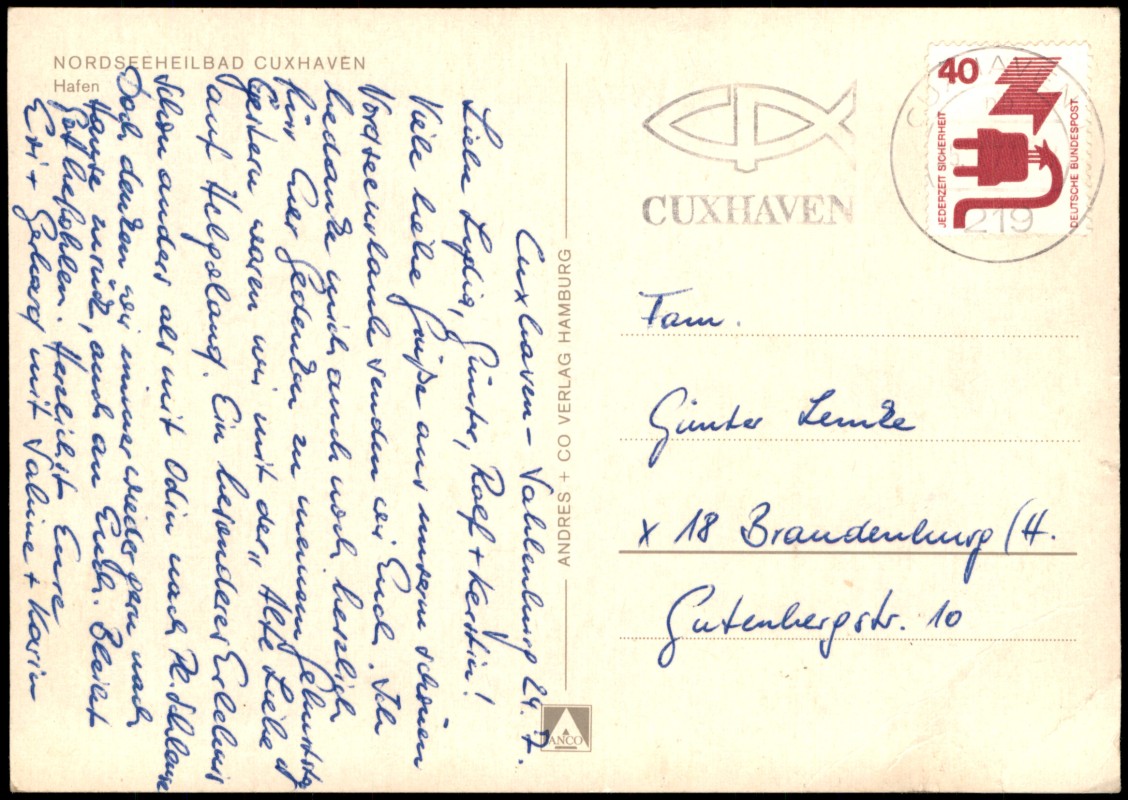 NORDSEEHEILBAD CUXHAVEN
Hafen
Cuxhaven - Sahlenburg 29. 7.
Liebe Lydia, Günter, Ralf + Kerstin!
Viele liebe Grüße aus unserm schönen
Nordseeurlaub senden wir Euch. Ich
bedanke mich auch noch herzlich
für Euer Gedenken zu meinem Geburtstg.
Gestern waren wir mit der " Alte Liebe "
auf Helgoland. Ein besonderes Erlebnis
schon anders als mit Odin nach
Doch denken wir immer wieder gern nach
Hause zurück, auch an Euch. Bleibt
Gott befohlen. Herzlichst Eure
Evi + Gerhard mit Sabine + Karin
ANDRES + CO VERLAG HAMBURG
ANCO
CUXHAVEN
CUXHAVEN
219
40
JEDERZEIT SICHERHEIT
DEUTSCHE BUNDESPOST
Fam.
Günter Lemke
x 18 Brandenburg/H.
Gutenbergstr. 10